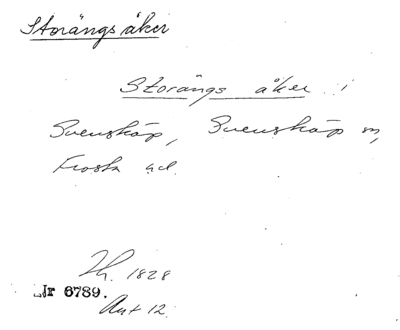 Storängs åker
Storängs åker i
Svensköp, Svensköp sn,
Frosta hd.
Th. 1828
Nr 6789.
Akt 12.